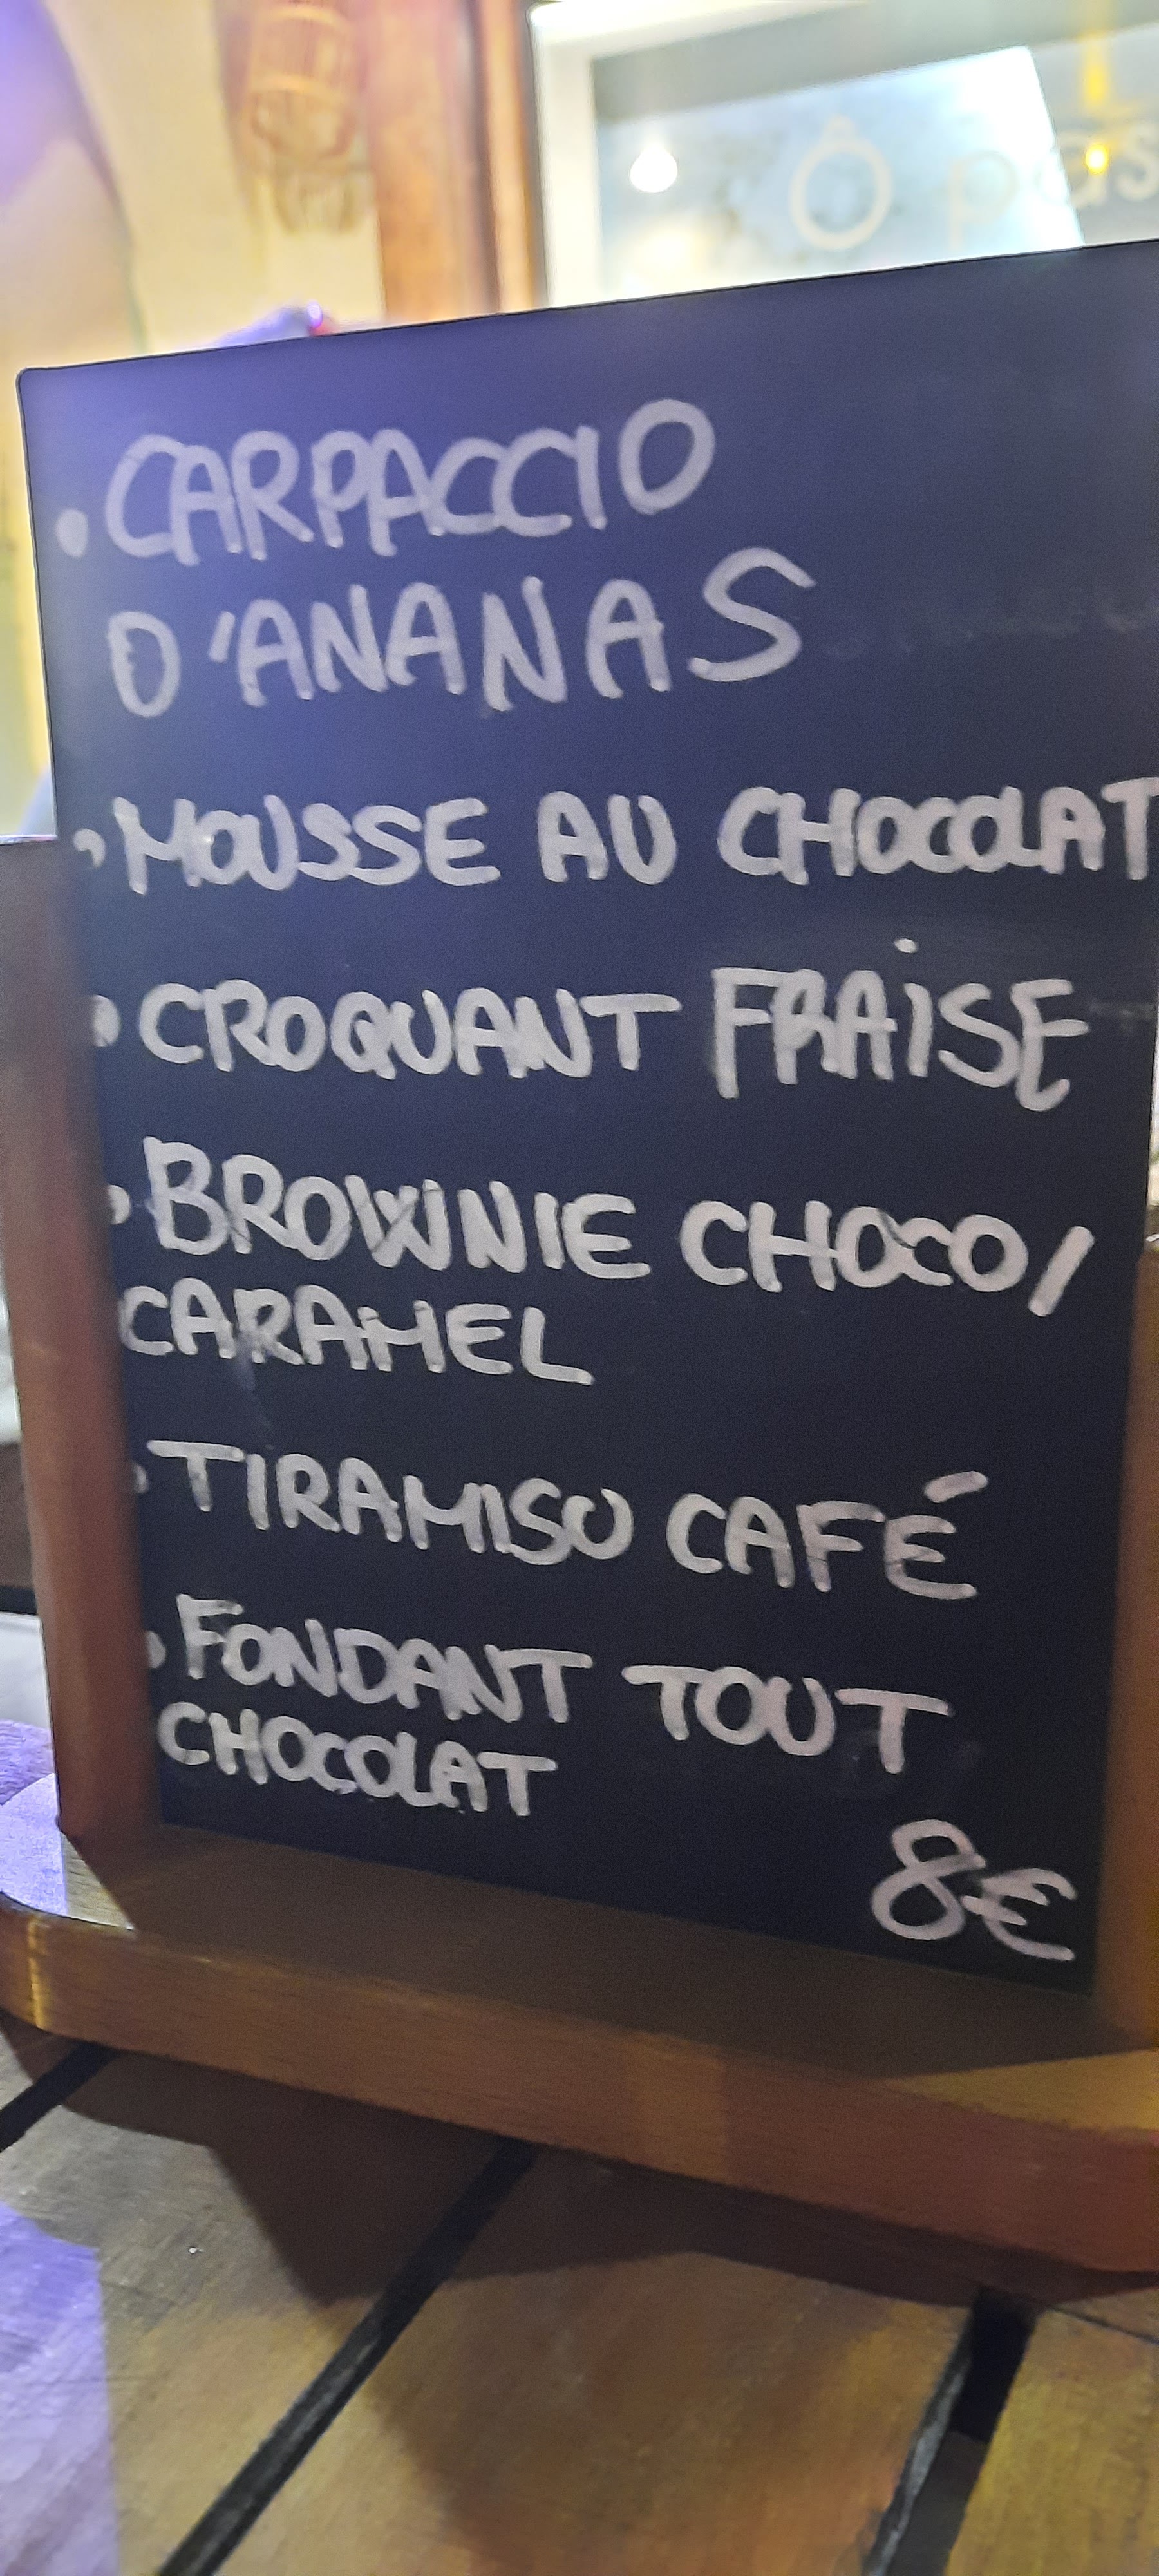 Ô pas
• CARPACCIO
D'ANANAS
• MOUSSE AU CHOCOLAT
• CROQUANT FRAISE
• BROWNIE CHOCO/
CARAMEL
• TIRAMISU CAFÉ
• FONDANT TOUT
CHOCOLAT
8€